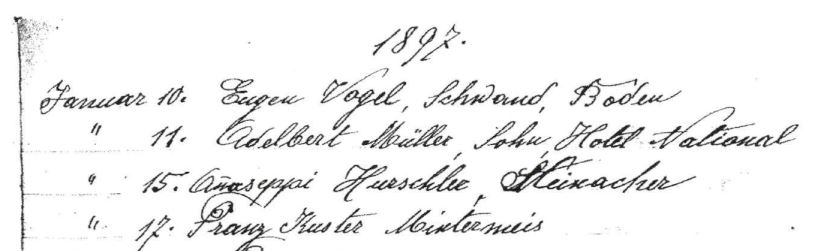 1897.
Januar 10. Eugen Vogel, Schwand, Boden
" 11. Adelbert Müller, Sohn, Hotel National
" 15. Hurschler, Steinacher
" 17. Franz Kuster